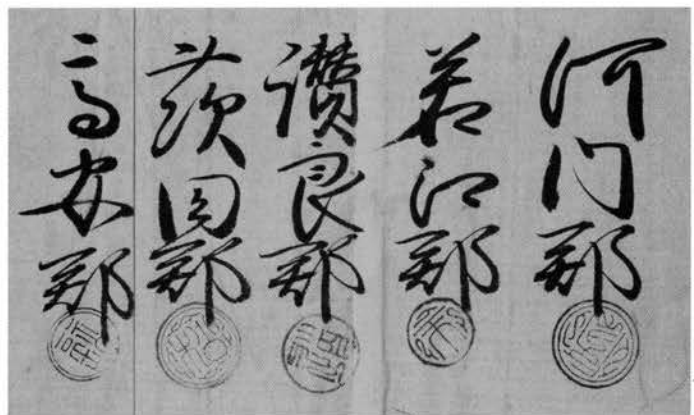 河内郡
若江郡
讃良郡
茨田郡
高安郡